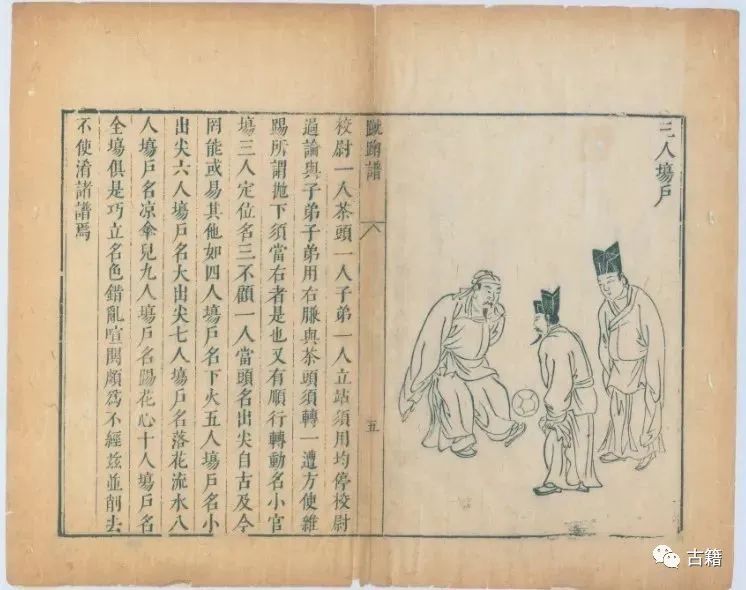 三人塲戶
蹴踘譜
五
校尉一人茶頭一人子弟一人立站須用均停校尉
過論與子弟子弟用右膁與茶頭須轉一遭方使雜
踢所謂拋下須當右者是也又有順行轉動名小官
塲三人定位名三不顧一人當頭名出尖自古及今
罔能或易其他如四人塲戶名下火五人塲戶名小
出尖六人塲戶名大出尖七人塲戶名落花流水八
人塲戶名凉傘兒九人塲戶名踢花心十人塲戶名
全塲俱是巧立名色錯亂喧鬧頗爲不經茲並削去
不使淆諸譜焉
古籍